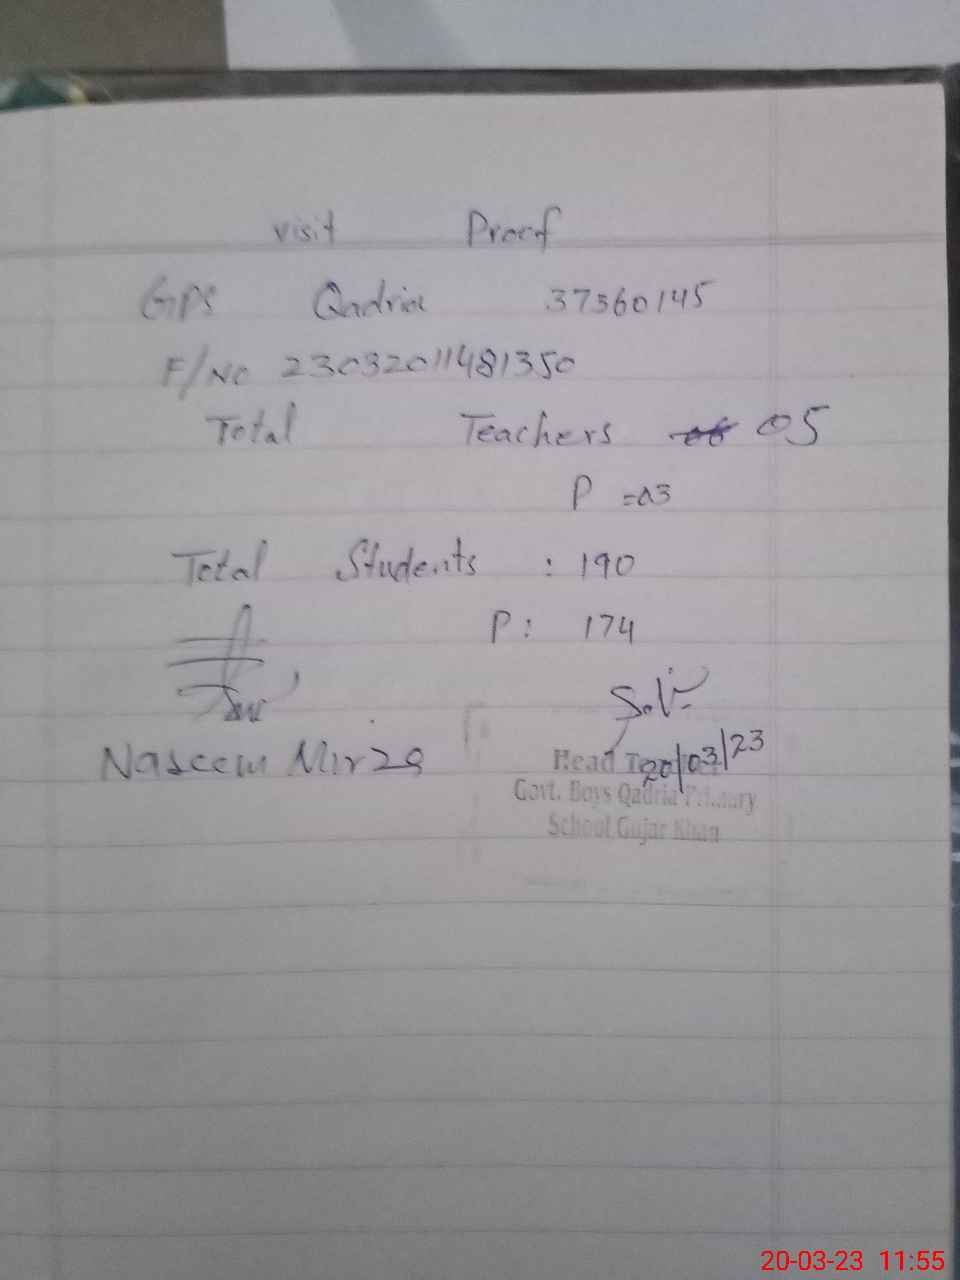 visit Proof
GPS Qadria 37360145
F/No 23032011481350
Total Teachers 05
P = 03
Total Students : 190
P : 174
Naseem Mirza
20/03/23
Head
Govt. Boys Qadria Primary
School Gujar Khan
20-03-23 11:55